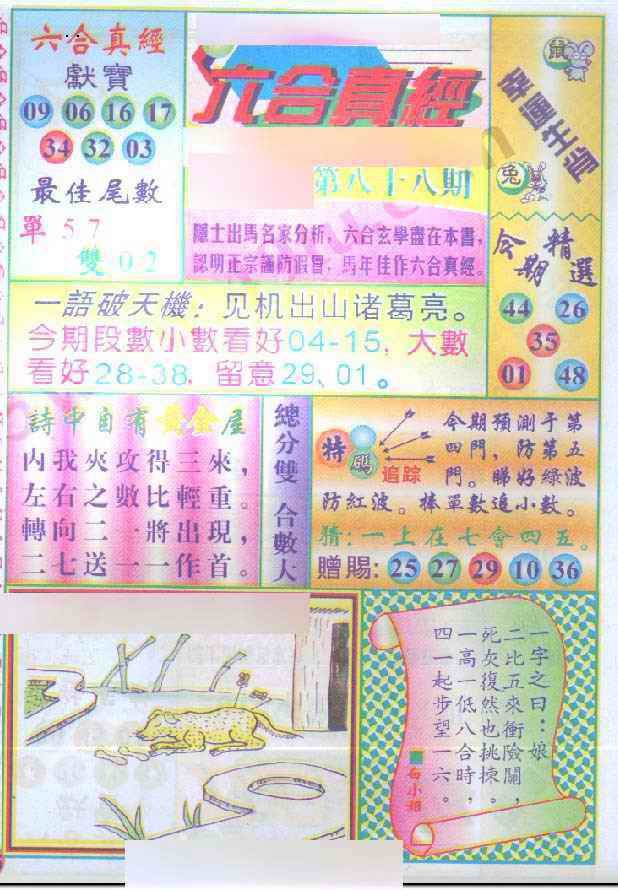 六合真經
獻寶
09 06 16 17
34 32 03
最佳尾數
單 5 7
雙 0 2
六合真經
第八十八期
隱士出馬名家分析，六合玄學盡在本書，
認明正宗謹防假冒，馬年佳作六合真經。
幸運生肖
鼠
兔
今期精選
44 26
35
01 48
一語破天機：见机出山诸葛亮。
今期段數小數看好04-15，大數
看好28-38，留意29、01。
詩中自有黃金屋
內我夾攻得三來，
左右之數比輕重。
轉向二一將出現，
二七送一一作首。
總分雙 合數大
特碼
追踪
今期預測于第
四門，防第五
門。睇好綠波
防紅波。棒單數追小數。
猜：一上在七會四五。
贈賜：25 27 29 10 36
一字之曰：娘
二比五來衝險關，
死灰復然也挑揀。
一高一低八合時，
四一起步望一六。